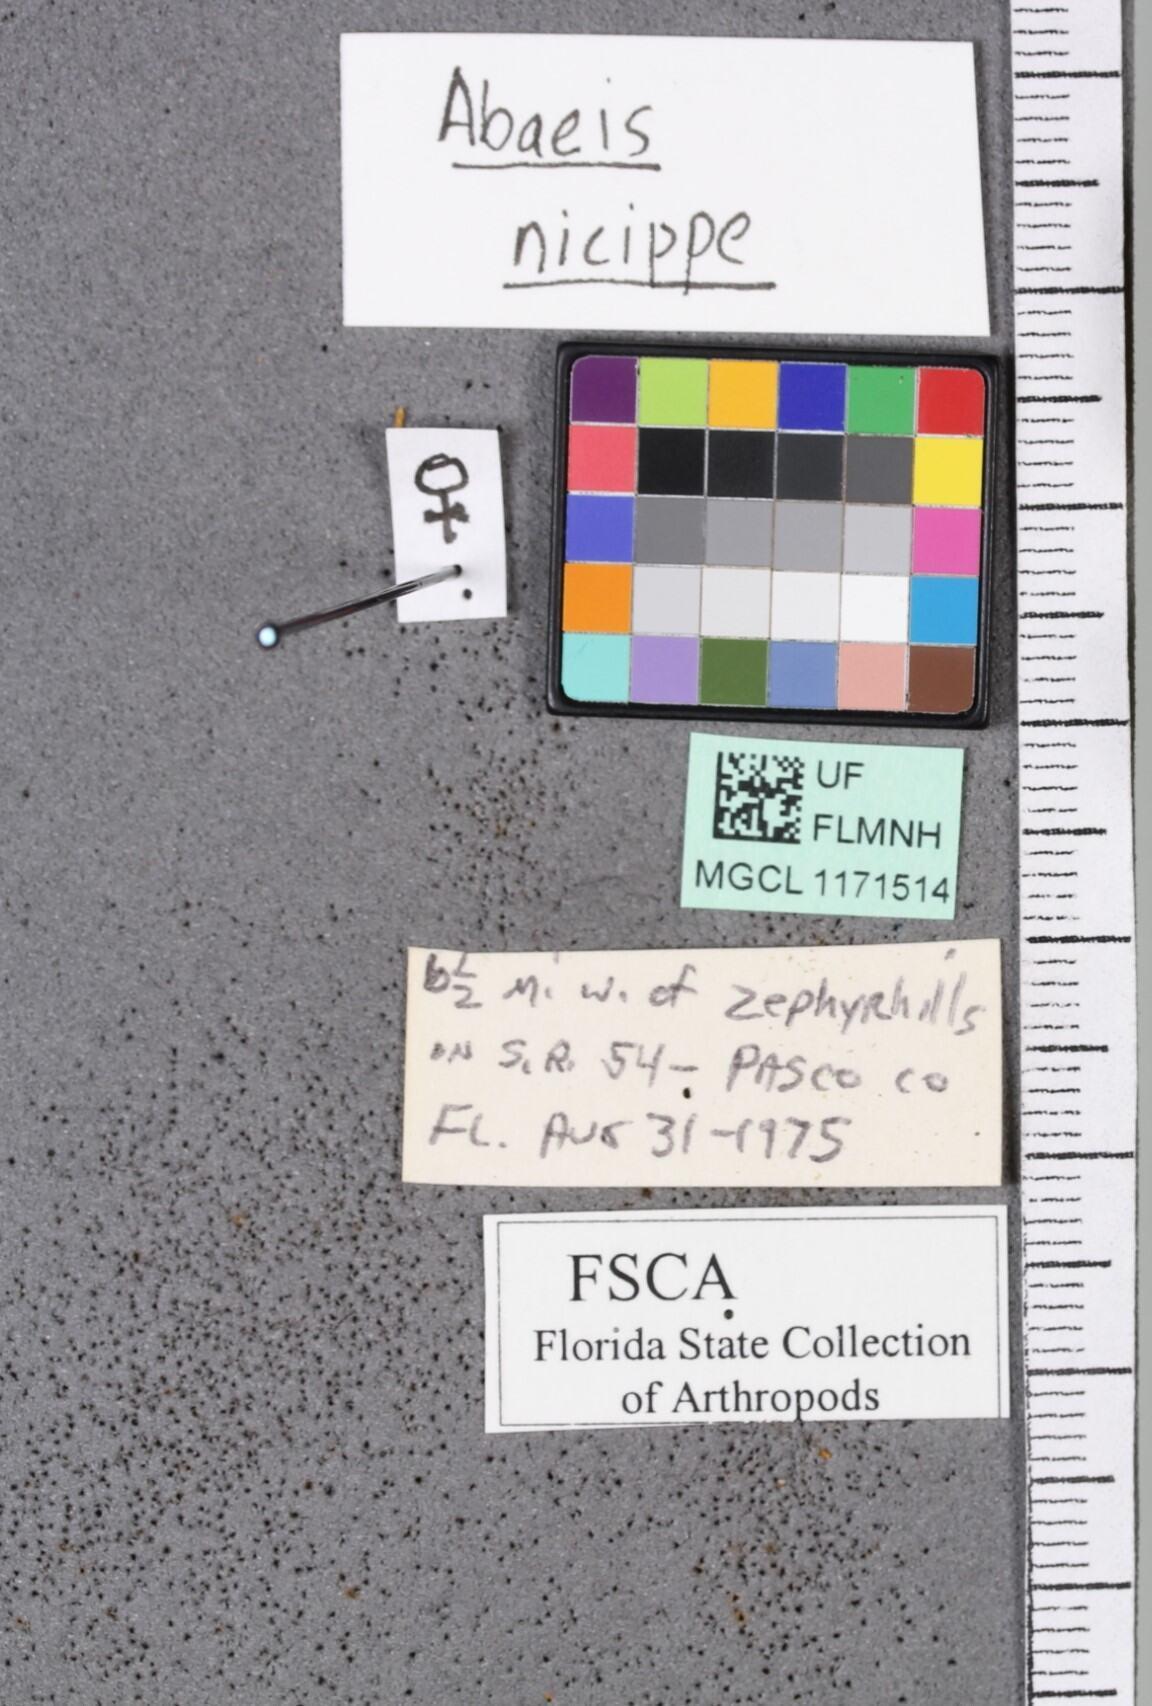 Abaeis
nicippe
♀
UF
FLMNH
MGCL 1171514
6½ Mi. W. of Zephyrhills
on S.R. 54 - PASCO CO
FL. AUG 31-1975
FSCA
Florida State Collection
of Arthropods